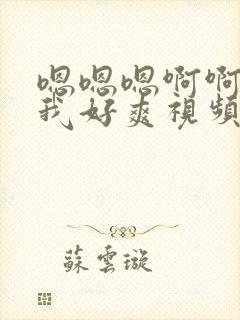 嗯嗯嗯啊啊
我好爽視頻
蘇雲璇